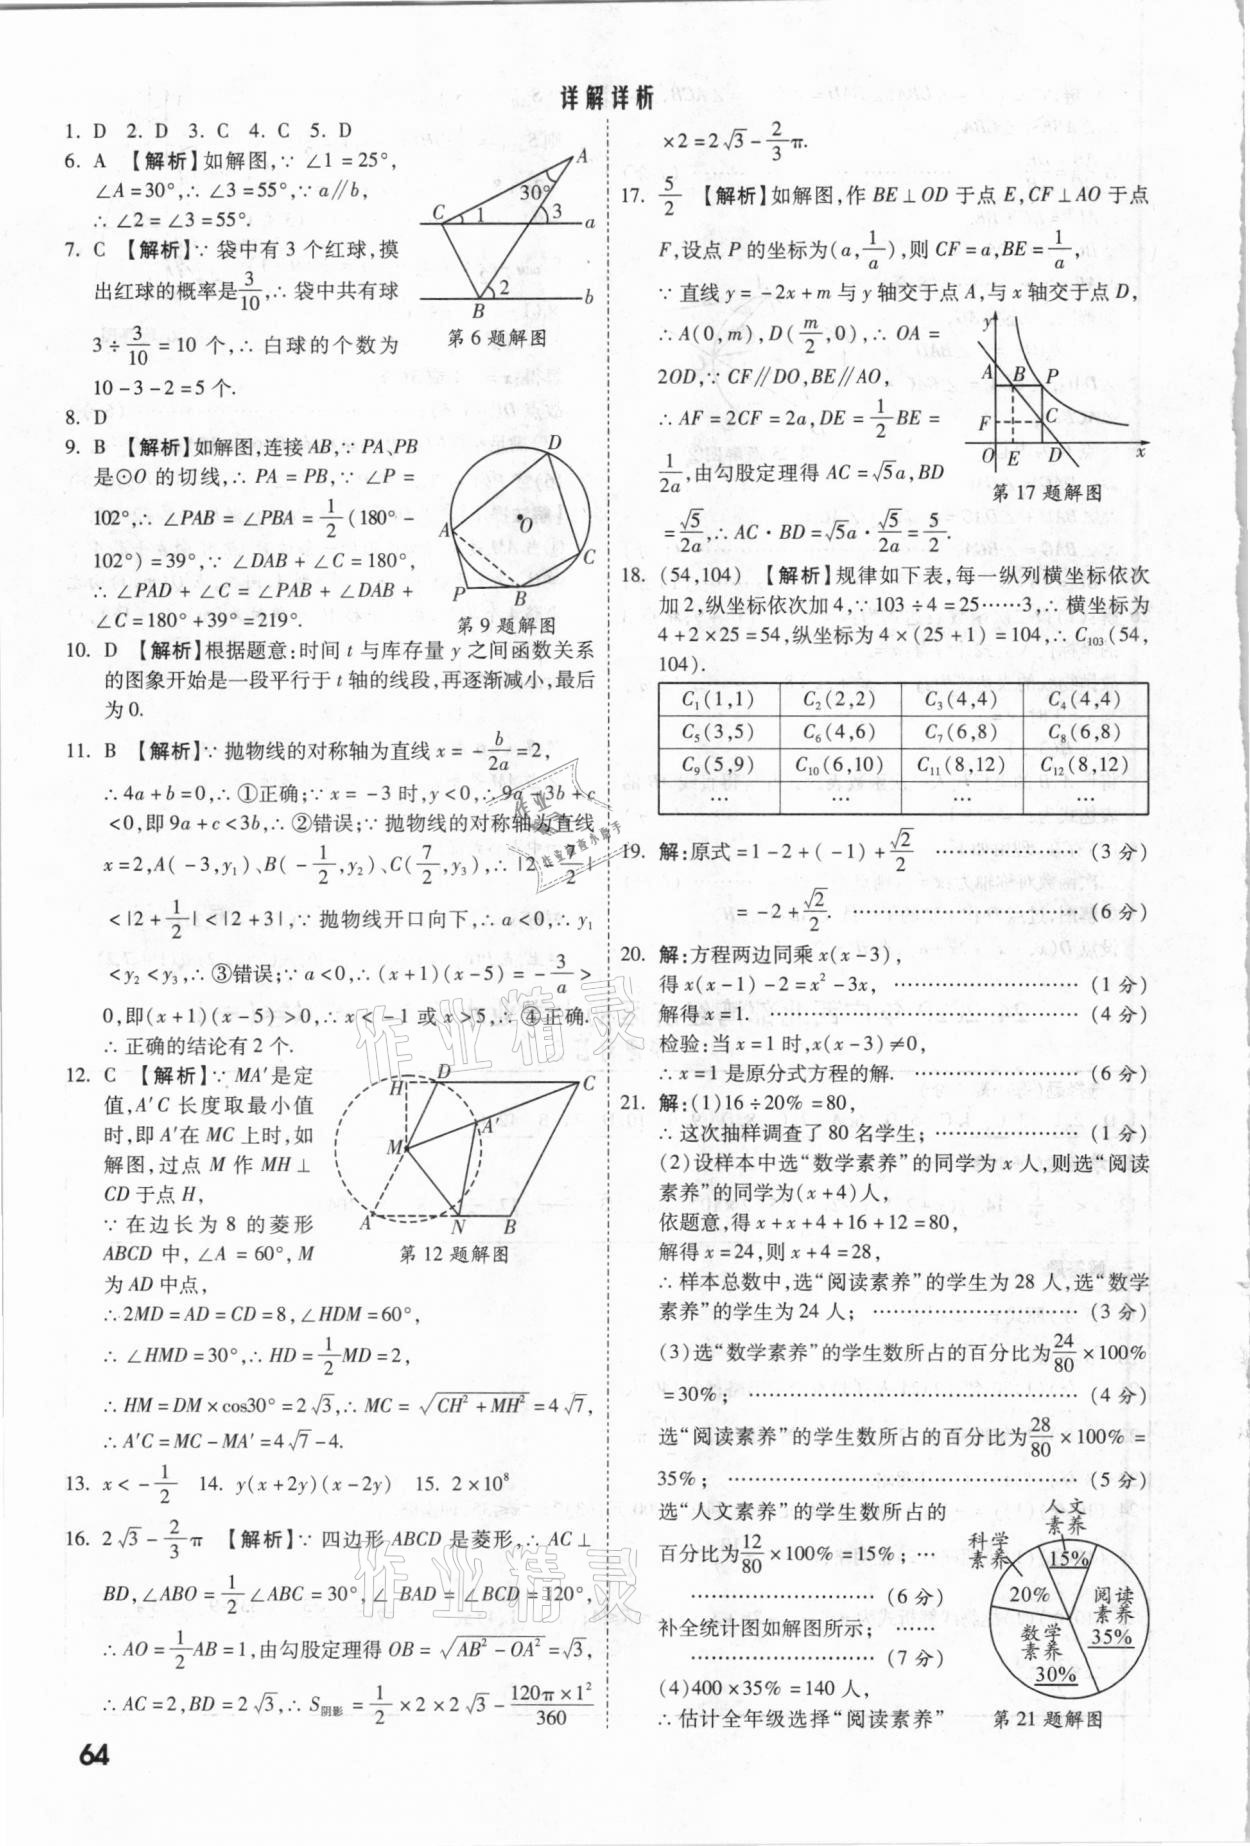 详解详析
1. D  2. D  3. C  4. C  5. D
6. A 【解析】如解图,∵ ∠1=25°,
∠A=30°,∴ ∠3=55°,∵a∥b,
∴ ∠2=∠3=55°.
A
30°
C
1
3
a
2
B
b
第6题解图
7. C 【解析】∵ 袋中有 3 个红球,摸
出红球的概率是3/10,∴ 袋中共有球
3÷3/10=10 个,∴ 白球的个数为
10-3-2=5 个.
8. D
9. B 【解析】如解图,连接AB,∵ PA、PB
是⊙O 的切线,∴ PA=PB,∵ ∠P=
102°,∴ ∠PAB=∠PBA=1/2(180°-
102°)=39°,∵ ∠DAB+∠C=180°,
∴ ∠PAD+∠C=∠PAB+∠DAB+
∠C=180°+39°=219°.
D
O
A
C
P
B
第9题解图
10. D 【解析】根据题意:时间 t 与库存量 y 之间函数关系
的图象开始是一段平行于 t 轴的线段,再逐渐减小,最后
为 0.
11. B 【解析】∵ 抛物线的对称轴为直线 x=-b/2a=2,
∴4a+b=0,∴ ①正确;∵x=-3 时,y<0,∴9a-3b+c
<0,即 9a+c<3b,∴ ②错误;∵ 抛物线的对称轴为直线
x=2,A(-3,y₁)、B(-1/2,y₂)、C(7/2,y₃),∴|2-7/2|
<|2+1/2|<|2+3|,∵ 抛物线开口向下,∴a<0,∴y₁
<y₂<y₃,∴ ③错误;∵a<0,∴(x+1)(x-5)=-3/a>
0,即(x+1)(x-5)>0,∴x<-1 或 x>5,∴ ④正确.
∴ 正确的结论有 2 个.
12. C 【解析】∵ MA′是定
值,A′C 长度取最小值
时,即 A′在 MC 上时,如
解图,过点 M 作 MH⊥
CD 于点 H,
∵ 在边长为 8 的菱形
ABCD 中,∠A=60°,M
为 AD 中点,
H
D
C
A′
M
A
N
B
第12题解图
∴2MD=AD=CD=8,∠HDM=60°,
∴ ∠HMD=30°,∴HD=1/2MD=2,
∴HM=DM×cos30°=2√3,∴MC=√(CH²+MH²)=4√7,
∴A′C=MC-MA′=4√7-4.
13. x<-1/2  14. y(x+2y)(x-2y)  15. 2×10⁸
16. 2√3-2/3π 【解析】∵ 四边形 ABCD 是菱形,∴AC⊥
BD,∠ABO=1/2∠ABC=30°,∠BAD=∠BCD=120°,
∴AO=1/2AB=1,由勾股定理得 OB=√(AB²-OA²)=√3,
∴AC=2,BD=2√3,∴S阴影=1/2×2×2√3-120π×1²/360
64
×2=2√3-2/3π.
17. 5/2 【解析】如解图,作 BE⊥OD 于点 E,CF⊥AO 于点
F,设点 P 的坐标为(a,1/a),则 CF=a,BE=1/a,
∵ 直线 y=-2x+m 与 y 轴交于点 A,与 x 轴交于点 D,
∴A(0,m),D(m/2,0),∴OA=
2OD,∵CF∥DO,BE∥AO,
∴AF=2CF=2a,DE=1/2BE=
1/2a,由勾股定理得 AC=√5a,BD
=√5/2a,∴AC·BD=√5a·√5/2a=5/2.
y
A
B
P
F
C
O
E
D
x
第17题解图
18. (54,104) 【解析】规律如下表,每一纵列横坐标依次
加 2,纵坐标依次加 4,∵103÷4=25……3,∴ 横坐标为
4+2×25=54,纵坐标为 4×(25+1)=104,∴C₁₀₃(54,
104).
C₁(1,1)  C₂(2,2)  C₃(4,4)  C₄(4,4)
C₅(3,5)  C₆(4,6)  C₇(6,8)  C₈(6,8)
C₉(5,9)  C₁₀(6,10)  C₁₁(8,12)  C₁₂(8,12)
…  …  …  …
19. 解:原式=1-2+(-1)+√2/2 ……………… (3 分)
=-2+√2/2. ……………………… (6 分)
20. 解:方程两边同乘 x(x-3),
得 x(x-1)-2=x²-3x, ……………………… (1 分)
解得 x=1. ……………………………… (4 分)
检验:当 x=1 时,x(x-3)≠0,
∴x=1 是原分式方程的解. ……………… (6 分)
21. 解:(1)16÷20%=80,
∴ 这次抽样调查了 80 名学生; ……………… (1 分)
(2)设样本中选“数学素养”的同学为 x 人,则选“阅读
素养”的同学为(x+4)人,
依题意,得 x+x+4+16+12=80,
解得 x=24,则 x+4=28,
∴ 样本总数中,选“阅读素养”的学生为 28 人,选“数学
素养”的学生为 24 人; ……………………… (3 分)
(3)选“数学素养”的学生数所占的百分比为24/80×100%
=30%; ……………………………………… (4 分)
选“阅读素养”的学生数所占的百分比为28/80×100%=
35%; ………………………………………… (5 分)
选“人文素养”的学生数所占的
百分比为12/80×100%=15%; …
……………………… (6 分)
补全统计图如解图所示; ……
……………………… (7 分)
(4)400×35%=140 人,
∴ 估计全年级选择“阅读素养”
人文
素养
15%
科学
素养
20%
阅读
素养
35%
数学
素养
30%
第21题解图
作业精灵
作业精灵